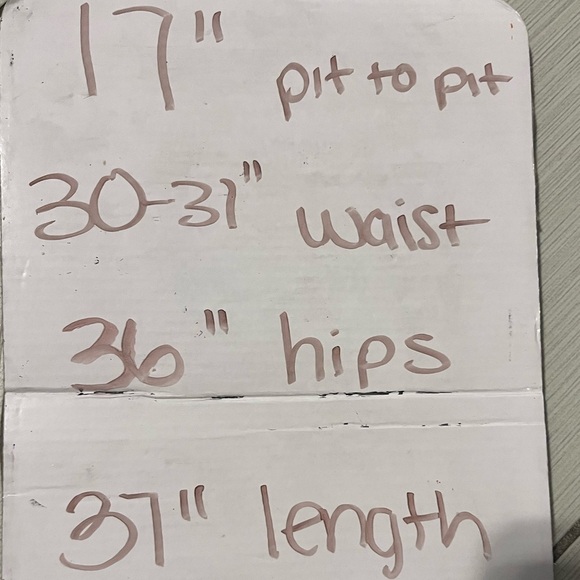 17" pit to pit
30-31" waist
36" hips
37" length